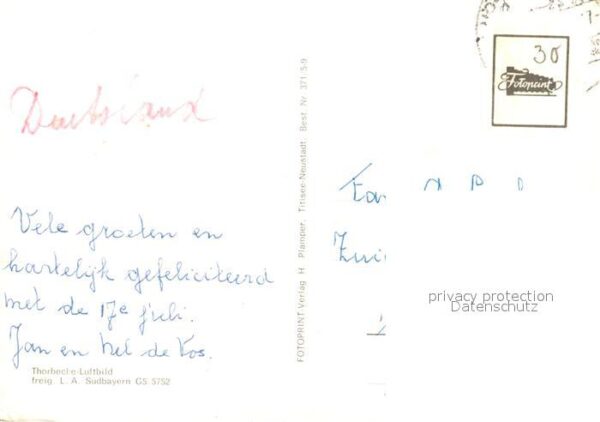 30
Fotoprint
Duitsland
FOTOPRINT Verlag H. Plamper, Titisee-Neustadt, Best. Nr. 371/5-9
Vele groeten en
hartelijk gefeliciteerd
met de 17e juli.
Jan en Nel de Vos.
Thorbecke-Luftbild
freig. L. A. Südbayern GS 5752
privacy protection
Datenschutz